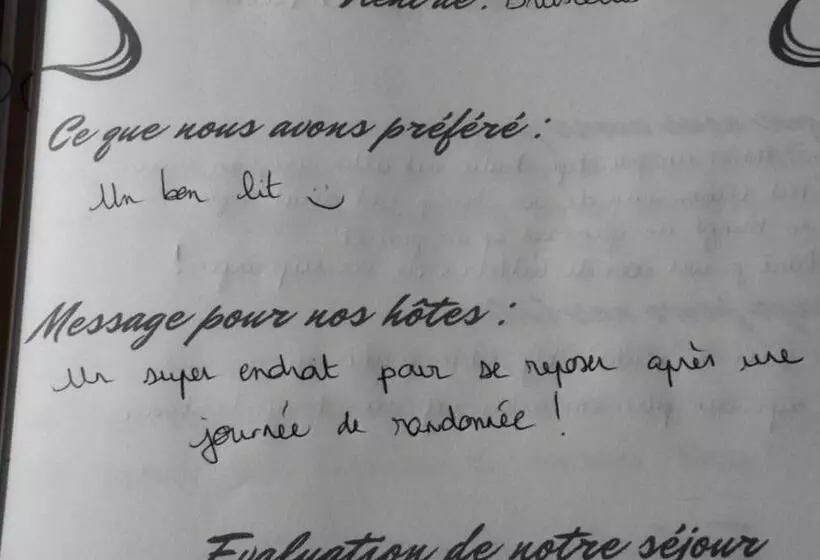 Ce que nous avons préféré :
Un bon lit :)
Message pour nos hôtes :
Un super endroit pour se reposer après une
journée de randonnée !
Evaluation de notre séjour